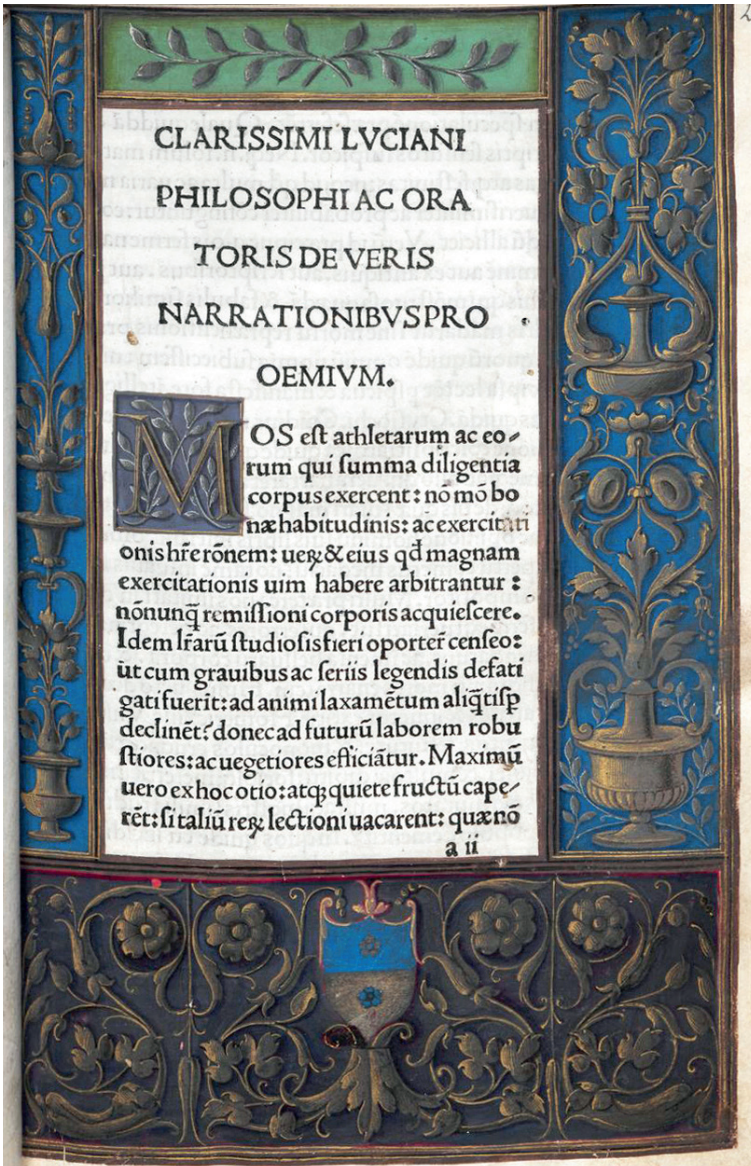 CLARISSIMI LVCIANI
PHILOSOPHI AC ORA
TORIS DE VERIS
NARRATIONIBVS PRO
OEMIVM.
MOS eſt athletarum ac eo⸗
rum qui ſumma diligentia
corpus exercent: nō mō bo
næ habitudinis: ac exercitati
onis hr̄e rōnem: ueꝝ & eius qđ magnam
exercitationis uim habere arbitrantur:
nōnunq̄ remiſſioni corporis acquieſcere.
Idem lr̄arū ſtudioſis fieri oportet̄ cenſeo:
ut cum grauibus ac ſeriis legendis defati
gati fuerīt: ad animi laxamētum aliq̄tiſꝑ
declinēt? donec ad futurū laborem robu
ſtiores: ac uegetiores efficiātur. Maximū
uero ex hoc otio: atqꝫ quiete fructū cape⸗
rēt: ſi taliū reꝝ lectioni uacarent: quæ nō
a ii